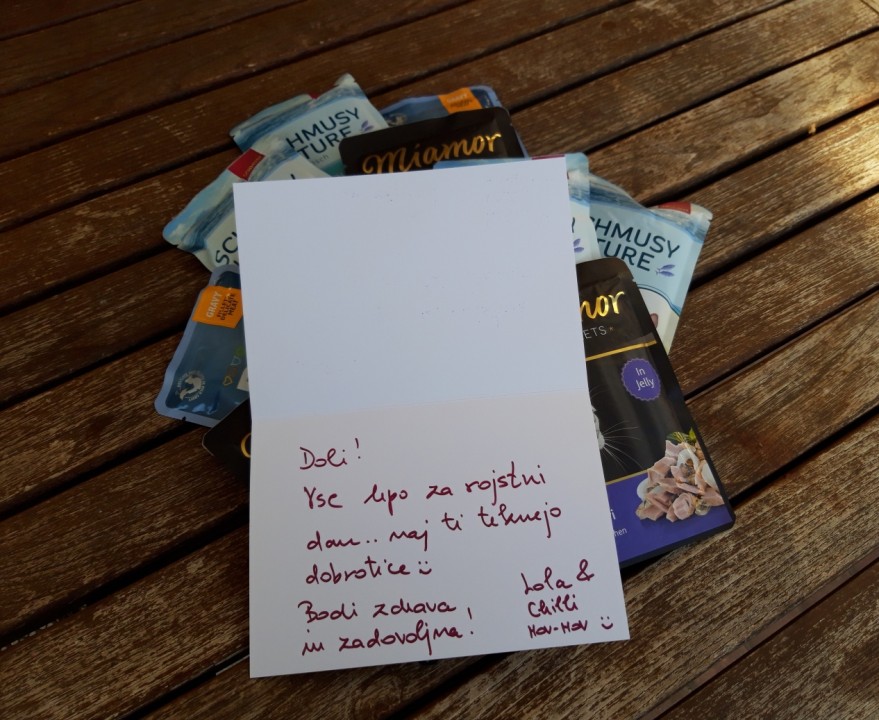 HMUSY
TURE
Miamor
SC
HMUSY
TURE
GRAVY
mor
ETS
In
Jelly
Doli!
Vse lepo za rojstni
dan.. naj ti teknejo
dobrotice
Bodi zdrava
in zadovoljna!
Lola &
Chilli
Hov-Hov